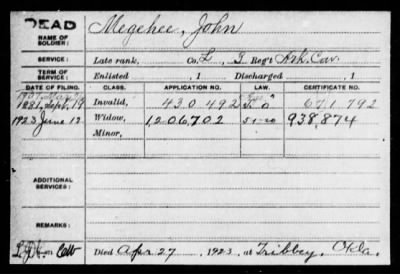 DEAD
NAME OF SOLDIER: Megehee, John
SERVICE: Late rank, Co. L, 3 Reg't Ark. Cav.
TERM OF SERVICE: Enlisted , 1 Discharged , 1
DATE OF FILING. CLASS. APPLICATION NO. LAW. CERTIFICATE NO.
1881, Sept. 19 Invalid, 430.492 671.792
1923 June 12 Widow, 1206702 938,874
Minor,
ADDITIONAL SERVICES:
REMARKS:
Died Apr 27, 1923, at Tribbey, Okla.